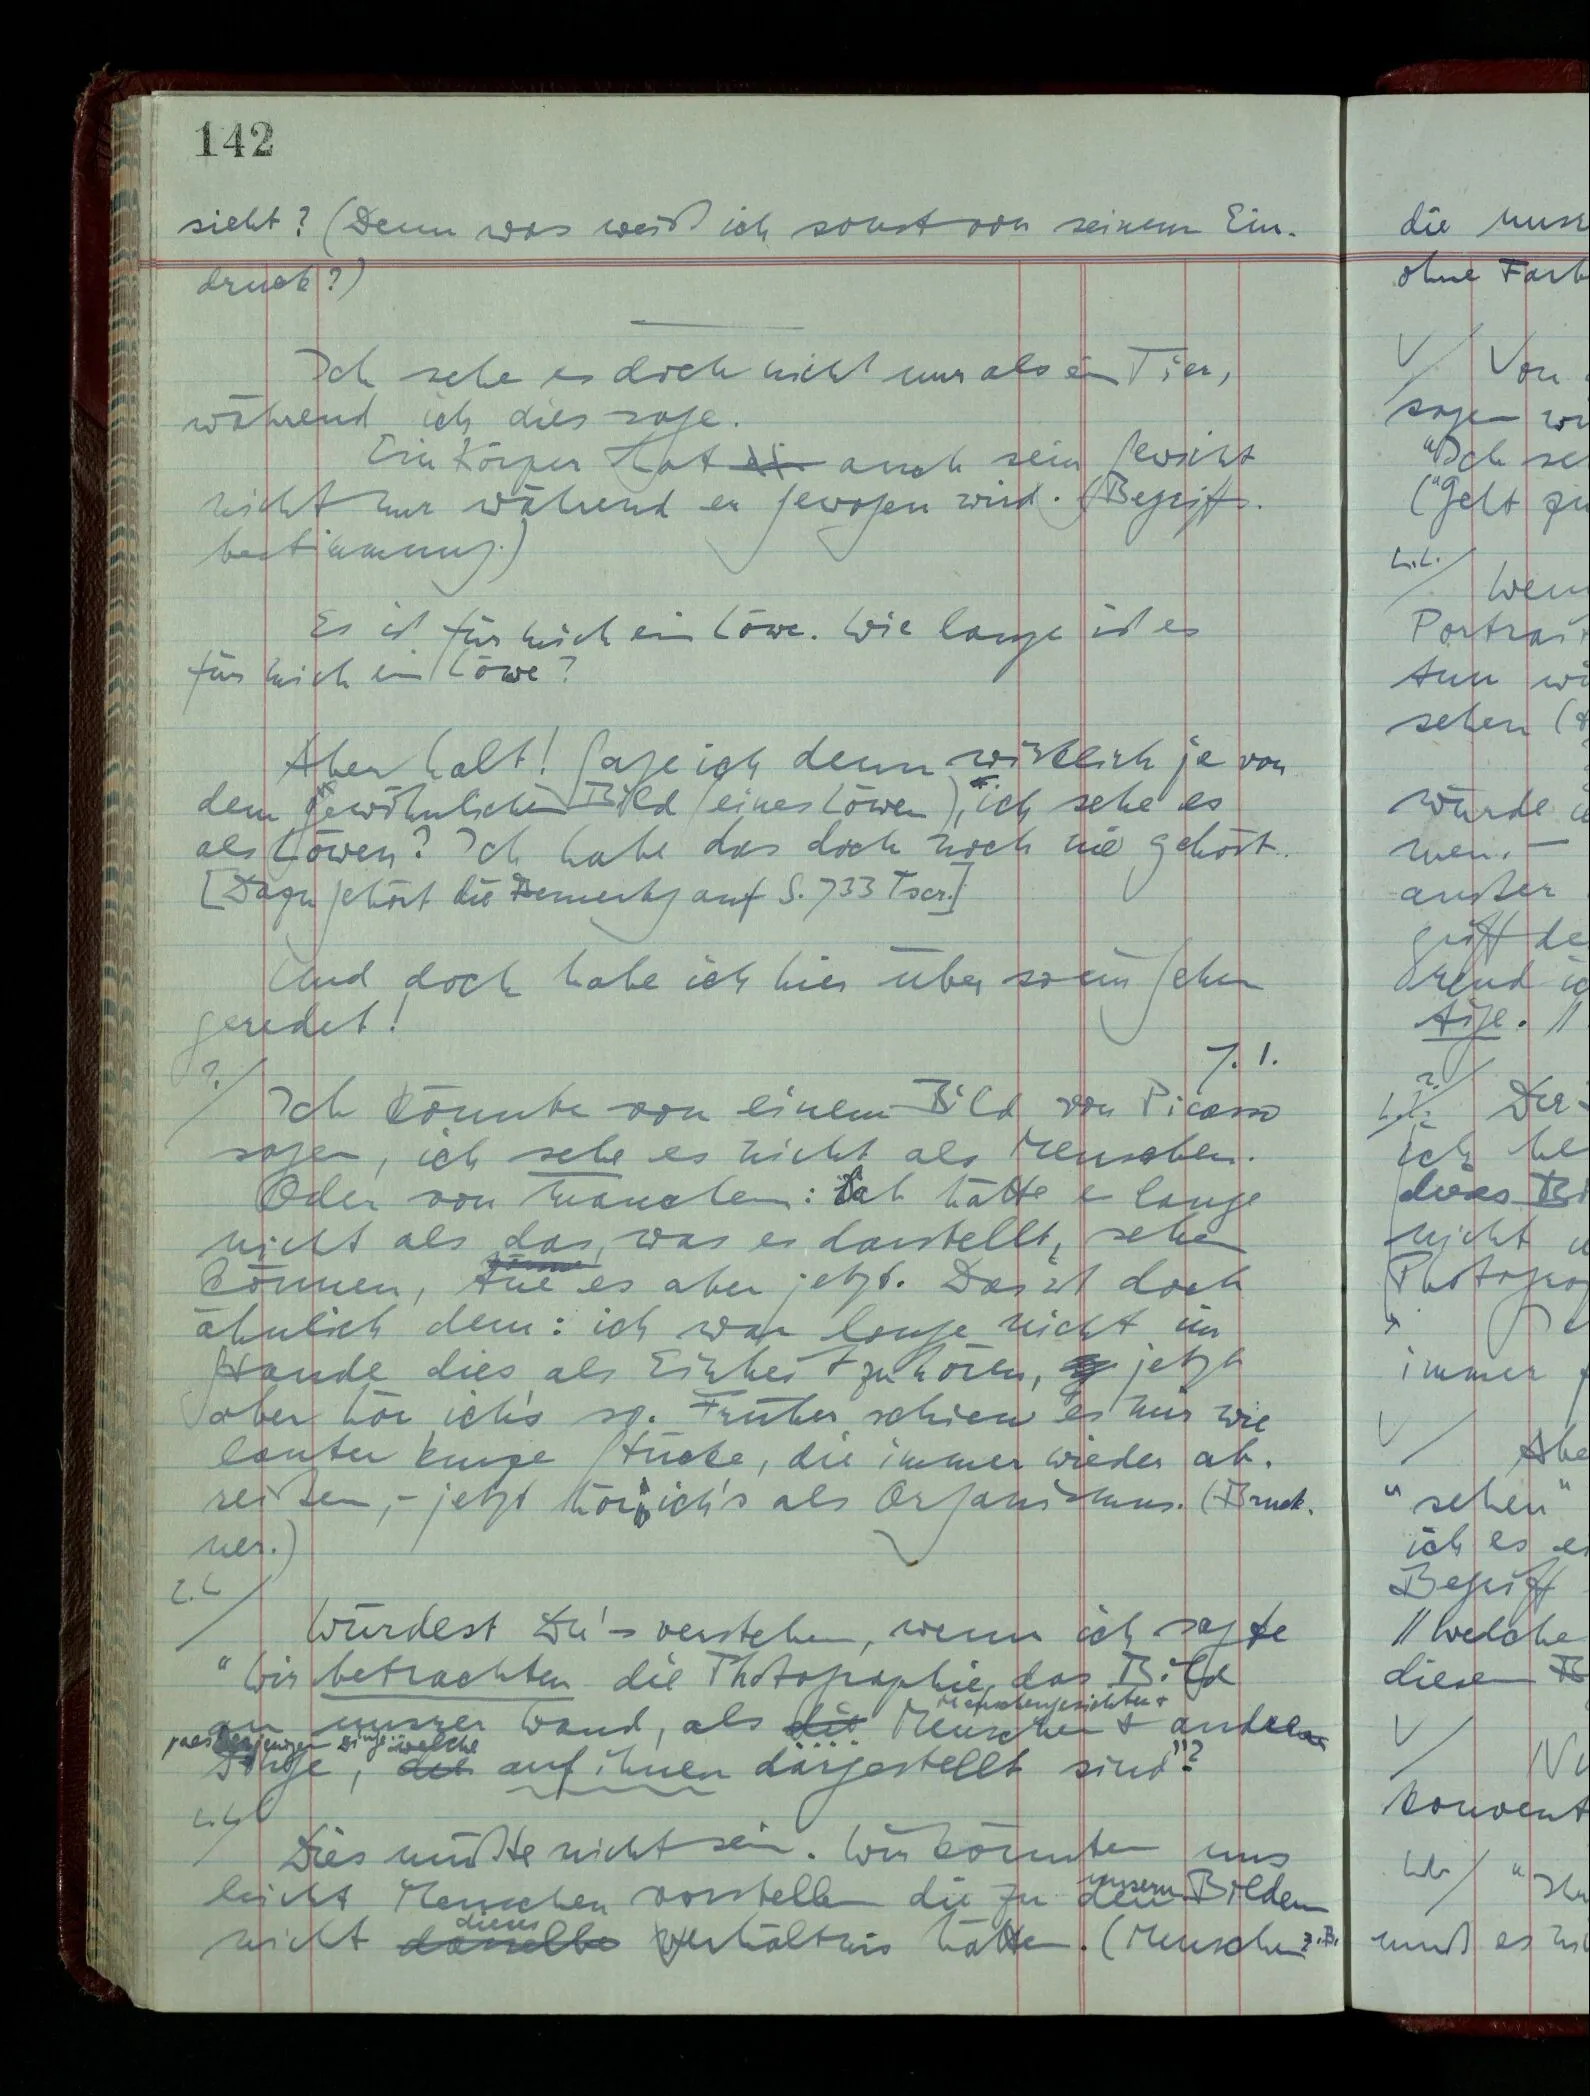 142
sieht? (Denn was weiß ich sonst von seinem Ein-
druck?)
Ich sehe es doch nicht nur als ein Tier,
während ich dies sage.
Ein Körper hat auch sein Gewicht
nicht nur während er gewogen wird. (Begriffs-
bestimmung.)
Es ist für mich ein Löwe. Wie lange ist es
für mich ein Löwe?
Aber halt! Sage ich denn wirklich je von
dem gewöhnlichen Bild (eines Löwen), ich sehe es
als Löwen? Ich habe das doch noch nie gehört.
[Dazu gehört die Bemerkg auf S. 733 Tscr.]
Und doch habe ich hier über so ein Sehen
geredet!
?/
7.1.
Ich könnte von einem Bild von Picasso
sagen, ich sehe es nicht als Menschen.
Oder von manchem: ich hätte es lange
nicht als das, was es darstellt, sehen
könne
können, tue es aber jetzt. Das ist doch
ähnlich dem: ich war lange nicht im
Stande dies als Einheit zu hören, jetzt
aber hör ich's so. Früher schien es mir wie
lauter kurze Stücke, die immer wieder ab-
reißen, – jetzt hör ich's als Organismus. (Bruck-
ner.)
Würdest Du's verstehen, wenn ich sagte
"Wir betrachten die Photographie, das Bild
Menschengesichter +
an unsrer Wand, als die Menschen + andern
diejenigen Dinge welche
Dinge, die auf ihnen dargestellt sind"?
Dies müßte nicht sein. Wir könnten uns
unsern
leicht Menschen vorstellen die zu den Bildern
dieses
nicht dasselbe Verhältnis hätten. (Menschen z.B.
die
ohne Farb
V/
Von
sagen wi
"Ich se
Wenn
Portrai
tun wi
sehen (
würde
men. –
außer
griff de
rend ic
tige. //
?/
Der
ich he
dieses Bi
nicht
Photograp
immer
V/
Abe
"sehen"
ich es
Begriff
// Welche
diesen B
V/
konvent
muß es